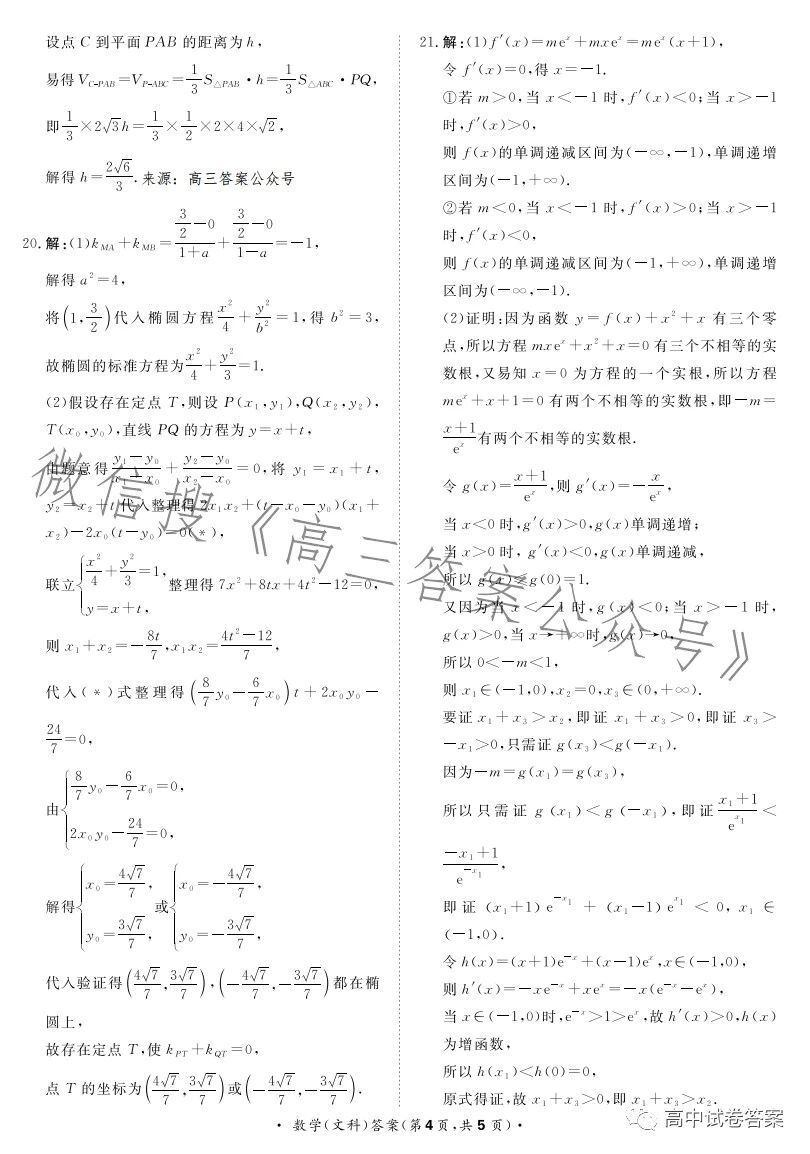 设点 C 到平面 PAB 的距离为 h，
易得 V_{C-PAB}=V_{P-ABC}=\frac{1}{3}S_{△PAB}·h=\frac{1}{3}S_{△ABC}·PQ，
即\frac{1}{3}×2\sqrt{3}h=\frac{1}{3}×\frac{1}{2}×2×4×\sqrt{2}，
解得 h=\frac{2\sqrt{6}}{3}.来源：高三答案公众号
20.解：(1)k_{MA}+k_{MB}=\frac{\frac{3}{2}-0}{1+a}+\frac{\frac{3}{2}-0}{1-a}=-1，
解得 a²=4，
将(1,\frac{3}{2})代入椭圆方程\frac{x²}{4}+\frac{y²}{b²}=1，得 b²=3，
故椭圆的标准方程为\frac{x²}{4}+\frac{y²}{3}=1.
(2)假设存在定点 T，则设 P(x₁,y₁)，Q(x₂,y₂)，
T(x₀,y₀)，直线 PQ 的方程为 y=x+t，
由题意得\frac{y₁-y₀}{x₁-x₀}+\frac{y₂-y₀}{x₂-x₀}=0，将 y₁=x₁+t，
y₂=x₂+t 代入整理得 2x₁x₂+(t-x₀-y₀)(x₁+
x₂)-2x₀(t-y₀)=0(*)，
联立{\frac{x²}{4}+\frac{y²}{3}=1，y=x+t，整理得 7x²+8tx+4t²-12=0，
则 x₁+x₂=-\frac{8t}{7}，x₁x₂=\frac{4t²-12}{7}，
代入(*)式整理得(\frac{8}{7}y₀-\frac{6}{7}x₀)t+2x₀y₀-
\frac{24}{7}=0，
由{\frac{8}{7}y₀-\frac{6}{7}x₀=0，2x₀y₀-\frac{24}{7}=0，
解得{x₀=\frac{4\sqrt{7}}{7}，y₀=\frac{3\sqrt{7}}{7}，或{x₀=-\frac{4\sqrt{7}}{7}，y₀=-\frac{3\sqrt{7}}{7}，
代入验证得(\frac{4\sqrt{7}}{7},\frac{3\sqrt{7}}{7})，(-\frac{4\sqrt{7}}{7},-\frac{3\sqrt{7}}{7})都在椭
圆上，
故存在定点 T，使 k_{PT}+k_{QT}=0，
点 T 的坐标为(\frac{4\sqrt{7}}{7},\frac{3\sqrt{7}}{7})或(-\frac{4\sqrt{7}}{7},-\frac{3\sqrt{7}}{7}).
21.解：(1)f′(x)=meˣ+mxeˣ=meˣ(x+1)，
令 f′(x)=0，得 x=-1.
①若 m>0，当 x<-1 时，f′(x)<0；当 x>-1
时，f′(x)>0，
则 f(x)的单调递减区间为(-∞,-1)，单调递增
区间为(-1,+∞).
②若 m<0，当 x<-1 时，f′(x)>0；当 x>-1
时，f′(x)<0，
则 f(x)的单调递减区间为(-1,+∞)，单调递增
区间为(-∞,-1).
(2)证明：因为函数 y=f(x)+x²+x 有三个零
点，所以方程 mxeˣ+x²+x=0 有三个不相等的实
数根，又易知 x=0 为方程的一个实根，所以方程
meˣ+x+1=0 有两个不相等的实数根，即-m=
\frac{x+1}{eˣ}有两个不相等的实数根.
令 g(x)=\frac{x+1}{eˣ}，则 g′(x)=-\frac{x}{eˣ}，
当 x<0 时，g′(x)>0，g(x)单调递增；
当 x>0 时，g′(x)<0，g(x)单调递减，
所以 g(x)≤g(0)=1.
又因为当 x<-1 时，g(x)<0；当 x>-1 时，
g(x)>0，当 x→+∞时，g(x)→0，
所以 0<-m<1，
则 x₁∈(-1,0)，x₂=0，x₃∈(0,+∞).
要证 x₁+x₃>x₂，即证 x₁+x₃>0，即证 x₃>
-x₁>0，只需证 g(x₃)<g(-x₁).
因为-m=g(x₁)=g(x₃)，
所以只需证 g(x₁)<g(-x₁)，即证\frac{x₁+1}{e^{x₁}}<
\frac{-x₁+1}{e^{-x₁}}，
即证 (x₁+1)e^{-x₁}+(x₁-1)e^{x₁}<0，x₁∈
(-1,0).
令 h(x)=(x+1)e^{-x}+(x-1)eˣ，x∈(-1,0)，
则 h′(x)=-xe^{-x}+xeˣ=-x(e^{-x}-eˣ)，
当 x∈(-1,0)时，e^{-x}>1>eˣ，故 h′(x)>0，h(x)
为增函数，
所以 h(x₁)<h(0)=0，
原式得证，故 x₁+x₃>0，即 x₁+x₃>x₂.
微信搜《高三答案公众号》
·数学(文科)答案(第4页，共5页)·
高中试卷答案